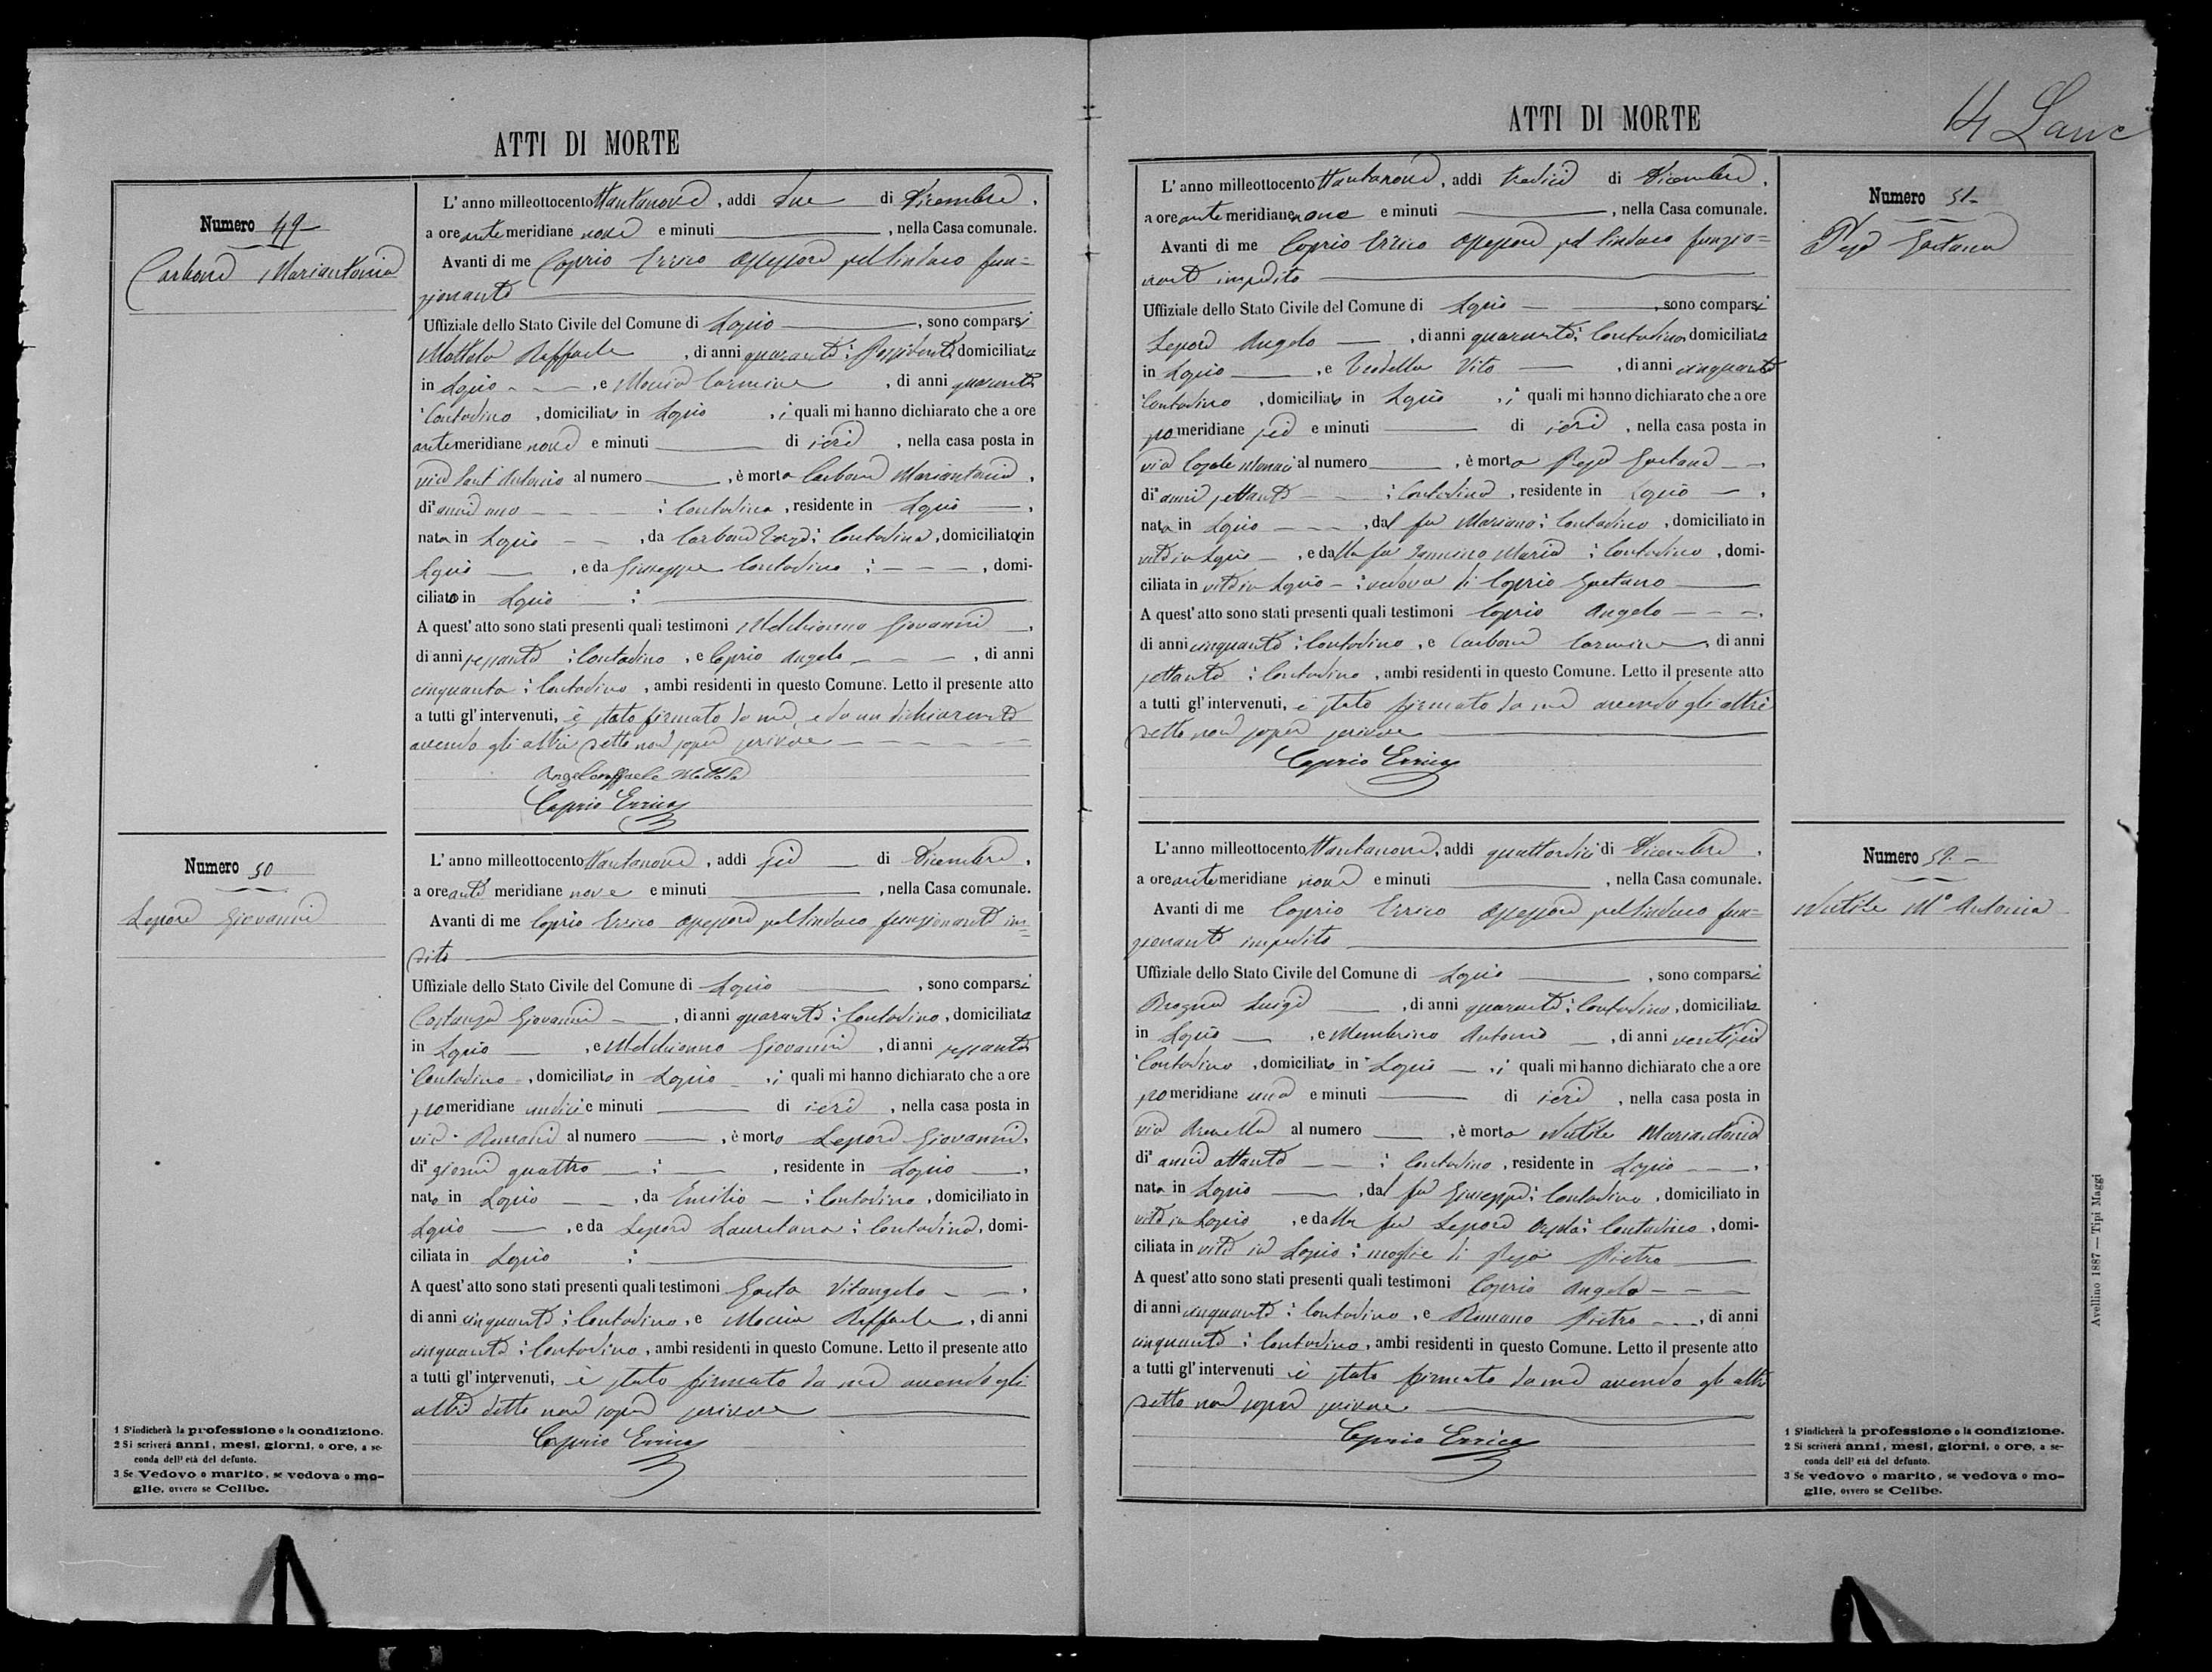 ATTI DI MORTE
Numero 49
Carbone Mariantonia
L' anno milleottocento ttantanove, addi due di Dicembre,
a ore antemeridiane nove e minuti, nella Casa comunale.
Avanti di me Caprio Errico Assessore pel Sindaco fun=
zionante
Uffiziale dello Stato Civile del Comune di Lapio, sono comparsi
Mottola Raffaele, di anni quaranta; Possidente domiciliato
in Lapio, e Moccia Carmine, di anni quaranta
Contadino, domiciliato in Lapio, i quali mi hanno dichiarato che a ore
antemeridiane nove e minuti di ieri, nella casa posta in
via Sant Antonio al numero, è morta Carbone Mariantonia,
di anni uno; Contadina, residente in Lapio,
nata in Lapio, da Carbone; Contadina, domiciliata in
Lapio, e da Giuseppe Contadino;, domi-
ciliato in Lapio;
A quest' atto sono stati presenti quali testimoni Melchionno Giovanni,
di anni sessanta; Contadino, e Caprio Angelo, di anni
cinquanta; Contadino, ambi residenti in questo Comune. Letto il presente atto
a tutti gl' intervenuti, è stato firmato da me, e da un dichiarante
avendo gli altri detto non saper scrivere
Angelo Raffaele Mottola
Caprio Errico
Numero 50
Lepore Giovanni
L' anno milleottocento ttantanove, addi sei di Dicembre,
a ore ante meridiane nove e minuti, nella Casa comunale.
Avanti di me Caprio Errico Assessore pel Sindaco funzionante im=
dito
Uffiziale dello Stato Civile del Comune di Lapio, sono comparsi
Costanza Giovanni, di anni quaranta; Contadino, domiciliato
in Lapio, e Melchionno Giovanni, di anni sessanta
Contadino, domiciliato in Lapio, i quali mi hanno dichiarato che a ore
pomeridiane undici e minuti di ieri, nella casa posta in
via Romani al numero, è morto Lepore Giovanni,
di giorni quattro;, residente in Lapio,
nato in Lapio, da Emilio; Contadino, domiciliato in
Lapio, e da Lepore Lauretana; Contadina, domi-
ciliata in Lapio;
A quest' atto sono stati presenti quali testimoni Gaeta Vitangelo,
di anni cinquanta; Contadino, e Moccia Raffaele, di anni
cinquanta; Contadino, ambi residenti in questo Comune. Letto il presente atto
a tutti gl' intervenuti, è stato firmato da me avendo gli
altri detto non saper scrivere
Caprio Errico
1 S'indicherà la professione o la condizione.
2 Si scriverà anni, mesi, giorni, o ore, a se-
conda dell' età del defunto.
3 Se Vedovo o marito, se vedova o mo-
glie, ovvero se Celibe.
14
ATTI DI MORTE
Numero 51
Gaetana
L' anno milleottocento ttantanove, addi tredici di Dicembre,
a ore antemeridiane nove e minuti, nella Casa comunale.
Avanti di me Caprio Errico Assessore pel Sindaco funzio=
nante impedito
Uffiziale dello Stato Civile del Comune di Lapio, sono comparsi
Lepore Angelo, di anni quaranta; Contadino, domiciliato
in Lapio, e Vito, di anni cinquanta
Contadino, domiciliato in Lapio, i quali mi hanno dichiarato che a ore
pomeridiane sei e minuti di ieri, nella casa posta in
via Casale Monaci al numero, è morta Gaetana,
di anni settanta; Contadina, residente in Lapio,
nata in Lapio, dal fu Mariano; Contadino, domiciliato in
vita in Lapio, e dalla fu Maria; Contadina, domi-
ciliata in vita in Lapio; vedova di Caprio Gaetano
A quest' atto sono stati presenti quali testimoni Caprio Angelo,
di anni cinquanta; Contadino, e Carbone Carmine, di anni
settanta; Contadino, ambi residenti in questo Comune. Letto il presente atto
a tutti gl' intervenuti, è stato firmato da me avendo gli altri
detto non saper scrivere
Caprio Errico
Numero 52
Nutile Mª Antonia
L' anno milleottocento ttantanove, addi quattordici di Dicembre,
a ore antemeridiane nove e minuti, nella Casa comunale.
Avanti di me Caprio Errico Assessore pel Sindaco fun=
zionante impedito
Uffiziale dello Stato Civile del Comune di Lapio, sono comparsi
Luigi, di anni quaranta; Contadino, domiciliato
in Lapio, e Membrino Antonio, di anni ventisei
Contadino, domiciliato in Lapio, i quali mi hanno dichiarato che a ore
pomeridiane una e minuti di ieri, nella casa posta in
via Arenella al numero, è morta Nutile Mariantonia
di anni ottanta; Contadina, residente in Lapio,
nata in Lapio, dal fu Giuseppe; Contadino, domiciliato in
vita in Lapio, e dalla fu Lepore; Contadina, domi-
ciliata in vita in Lapio; moglie di Pietro
A quest' atto sono stati presenti quali testimoni Caprio Angelo
di anni cinquanta; Contadino, e Romano Pietro, di anni
cinquanta; Contadino, ambi residenti in questo Comune. Letto il presente atto
a tutti gl' intervenuti è stato firmato da me avendo gli altri
detto non saper scrivere
Caprio Errico
1 S'indicherà la professione o la condizione.
2 Si scriverà anni, mesi, giorni, o ore, a se-
conda dell' età del defunto.
3 Se vedovo o marito, se vedova o mo-
glie, ovvero se Celibe.
Avellino 1887 — Tipi Maggi